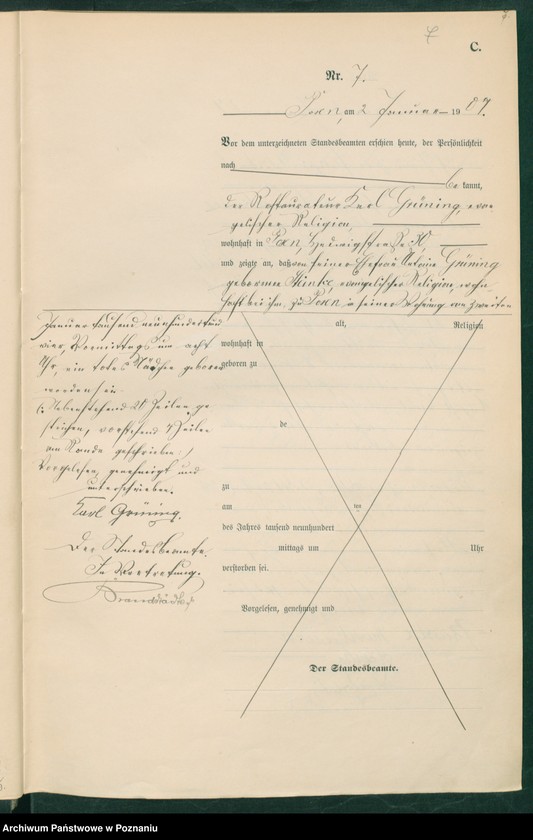 7.
7
C.
Nr. 7.
Posen, am 2 Januar 1907.
Vor dem unterzeichneten Standesbeamten erschien heute, der Persönlichkeit
nach
be kannt,
der Restaurateur Karl Grüning, evan
gelischer Religion,
wohnhaft in Posen,
und zeigte an, daß von seiner Ehefrau Grüning
geborenen evangelischer Religion, wohn
haft bei ihm, zu Posen in seiner Wohnung am zweiten
Januar tausend neunhundert und
Vormittags um acht
Uhr, ein totes Mädchen geboren
worden sei.
(: Nebenstehend Zeilen ge
strichen, vorstehend 4 Zeilen
am Rande geschrieben.
Vorgelesen, genehmigt und
unterschrieben.
Karl Grüning.
Der Standesbeamte.
In Vertretung.
alt, Religion
wohnhaft in
geboren zu
de
zu
am ten
des Jahres tausend neunhundert
mittags um Uhr
verstorben sei.
Vorgelesen, genehmigt und
Der Standesbeamte.
Archiwum Państwowe w Poznaniu